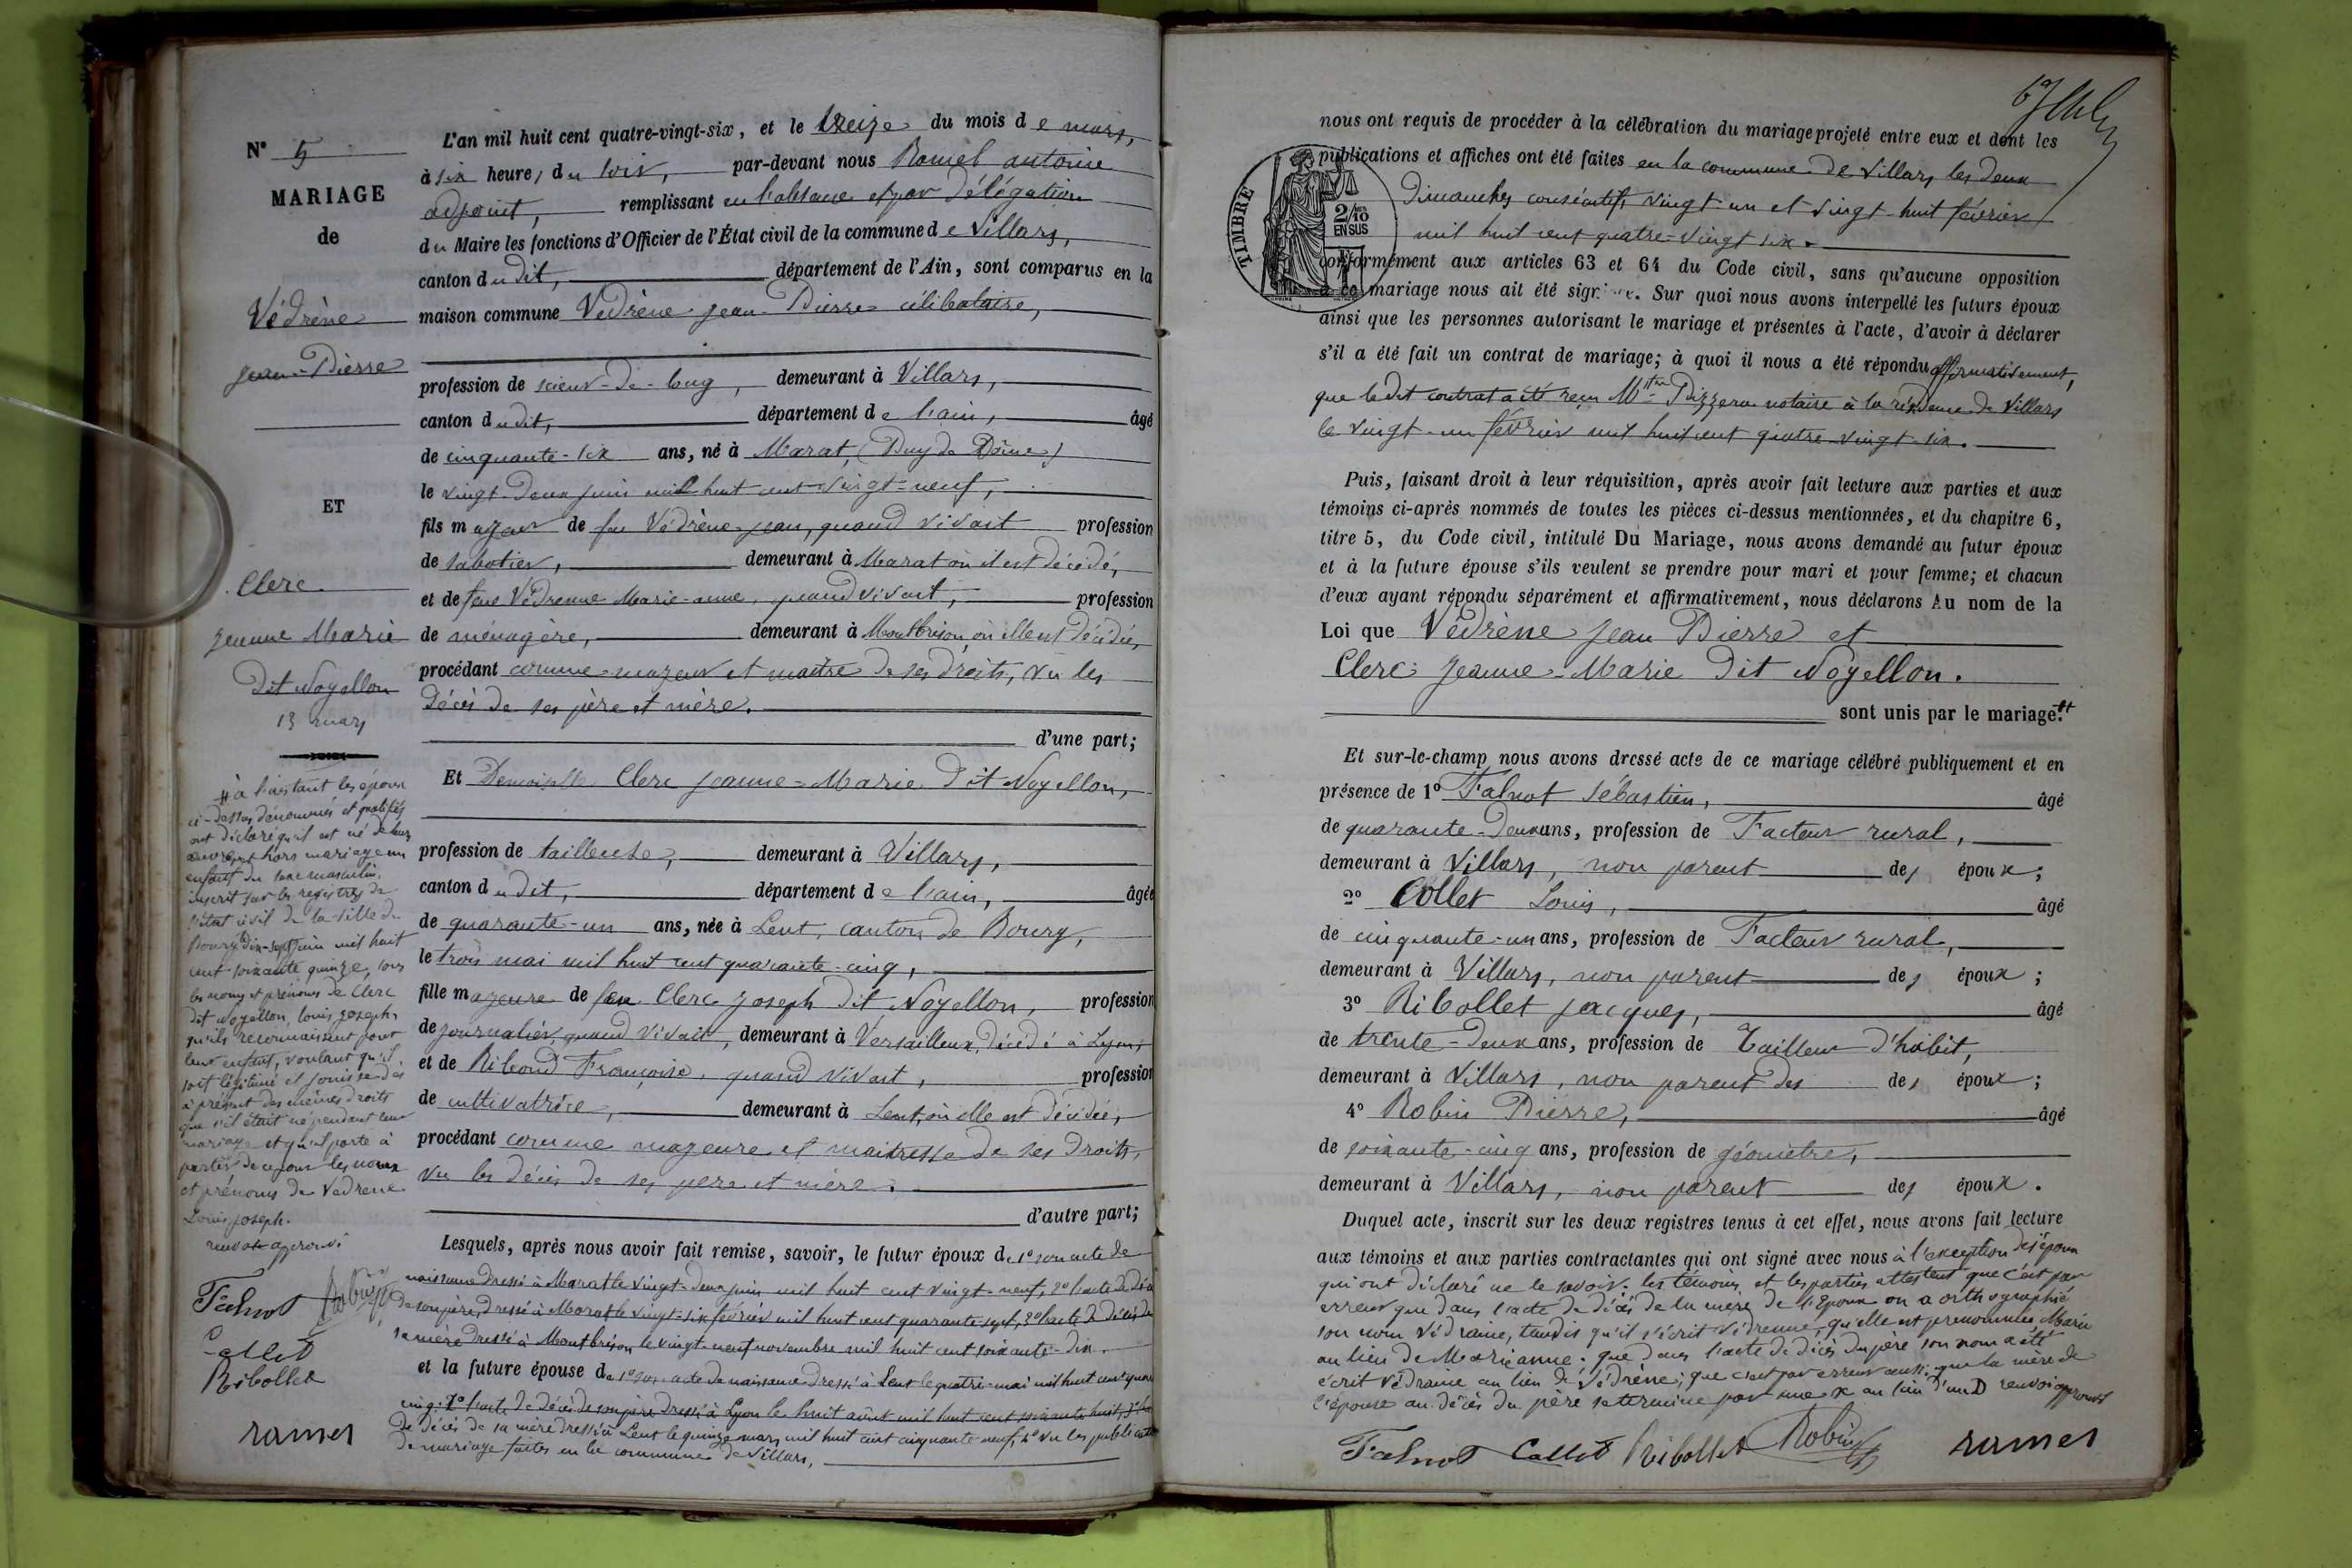 N° 5
MARIAGE
de
Védrène
Jean-Pierre
ET
Clerc
Jeanne Marie
Dit Noyellon
13 mars
# à l'instant les époux
ci-dessus dénommés et qualifiés
ont déclaré qu'il est né de leurs
œuvres et hors mariage un
enfant du sexe masculin,
inscrit sur les registres de
l'état civil de la ville de
Bourg le dix-sept juin mil huit
cent soixante quinze, sous
les noms et prénoms de Clerc
dit Noyellon, Louis Joseph,
qu'ils reconnaissent pour
leur enfant, voulant qu'il
soit légitimé et jouisse dès
à présent des mêmes droits
que s'il était né pendant leur
mariage et qu'il porte à
partir de ce jour les noms
et prénoms de Vedrene
Louis Joseph.
renvoi approuvé
Falnot Robin
Collet
Ribollet
ramel
L'an mil huit cent quatre-vingt-six, et le treize du mois de mars,
à six heures du soir, par-devant nous Ramel antoine
adjoint, remplissant en l'absence et par délégation
du Maire les fonctions d'Officier de l'État civil de la commune de Villars,
canton dudit, département de l'Ain, sont comparus en la
maison commune Védrène Jean-Pierre célibataire,
profession de scieur-de-long, demeurant à Villars,
canton dudit, département de l'ain, âgé
de cinquante-six ans, né à Marat, (Puy de Dôme)
le vingt-deux juin mil huit cent vingt-neuf,
fils majeur de feu Védrène Jean, quand vivait profession
de sabotier, demeurant à Marat où il est décédé,
et de feue Védrenne Marie-anne, quand vivait, profession
de ménagère, demeurant à Montbrison où elle est décédée,
procédant comme majeur et maître de ses droits, vu les
décès de ses père et mère.
d'une part;
Et Demoiselle Clerc Jeanne-Marie Dit Noyellon,
profession de tailleuse, demeurant à Villars,
canton dudit, département de l'ain, âgée
de quarante-un ans, née à Lent, canton de Bourg,
le trois mai mil huit cent quarante-cinq,
fille majeure de feu Clerc Joseph dit Noyellon, profession
de journalier, quand vivait, demeurant à Versailleux, décédé à Lyon,
et de Riboud Françoise, quand vivait, profession
de cultivatrice, demeurant à Lent, où elle est décédée,
procédant comme majeure et maitresse de ses droits,
vu les décès de ses pere et mère.
d'autre part;
Lesquels, après nous avoir fait remise, savoir, le futur époux de 1° son acte de
naissance dressé à Marat le vingt-deux juin mil huit cent vingt-neuf, 2° l'acte de décès
de son père, dressé à Marat le vingt-six février mil huit cent quarante-sept, 3° l'acte de décès de
sa mère dressé à Montbrison le vingt-neuf novembre mil huit cent soixante-dix.
et la future épouse de 1° son acte de naissance dressé à Lent le quatre mai mil huit cent quarante
cinq, 2° l'acte de décès de son père dressé à Lyon le huit août mil huit cent soixante huit, 3° l'acte
de décès de sa mère dressé à Lent le quinze mars mil huit cent cinquante-neuf, 4° vu les publications
de mariage faites en la commune de Villars,
nous ont requis de procéder à la célébration du mariage projeté entre eux et dont les
publications et affiches ont été faites en la commune de Villars les deux
dimanches consécutifs vingt-un et vingt-huit février
mil huit cent quatre-vingt six.
TIMBRE
2/10
EN SUS
conformément aux articles 63 et 64 du Code civil, sans qu'aucune opposition
à ce mariage nous ait été signifiée. Sur quoi nous avons interpellé les futurs époux
ainsi que les personnes autorisant le mariage et présentes à l'acte, d'avoir à déclarer
s'il a été fait un contrat de mariage; à quoi il nous a été répondu affirmativement,
que ledit contrat a été reçu Mtre Pizzera notaire à la résidence de Villars
le vingt-un février mil huit cent quatre-vingt-six.
Puis, faisant droit à leur réquisition, après avoir fait lecture aux parties et aux
témoins ci-après nommés de toutes les pièces ci-dessus mentionnées, et du chapitre 6,
titre 5, du Code civil, intitulé Du Mariage, nous avons demandé au futur époux
et à la future épouse s'ils veulent se prendre pour mari et pour femme; et chacun
d'eux ayant répondu séparément et affirmativement, nous déclarons Au nom de la
Loi que Védrène Jean Pierre et
Clerc Jeanne-Marie Dit Noyellon.
sont unis par le mariage. #
Et sur-le-champ nous avons dressé acte de ce mariage célébré publiquement et en
présence de 1° Falnot Sébastien, âgé
de quarante-deux ans, profession de Facteur rural,
demeurant à Villars, non parent des époux;
2° Collet Louis, âgé
de cinquante-un ans, profession de Facteur rural,
demeurant à Villars, non parent des époux;
3° Ribollet Jacques, âgé
de trente-deux ans, profession de Tailleur d'habit,
demeurant à Villars, non parent des des époux;
4° Robin Pierre, âgé
de soixante-cinq ans, profession de géomètre,
demeurant à Villars, non parent des époux.
Duquel acte, inscrit sur les deux registres tenus à cet effet, nous avons fait lecture
aux témoins et aux parties contractantes qui ont signé avec nous à l'exception des époux
qui ont déclaré ne le savoir. les témoins et les parties attestent que c'est par
erreur que dans l'acte de décès de la mère de l'Epoux on a orthographié
son nom Védraine, tandis qu'il s'écrit Védrenne, qu'elle est prénommée Marie
au lieu de Marieanne; que dans l'acte de décès du père son nom a été
écrit Védraine au lieu de Védrène; que c'est par erreur aussi que la mère de
l'épouse au décès du père se termine par une x au lieu d'un D renvoi approuvé
Falnot Collet Ribollet Robin ramel